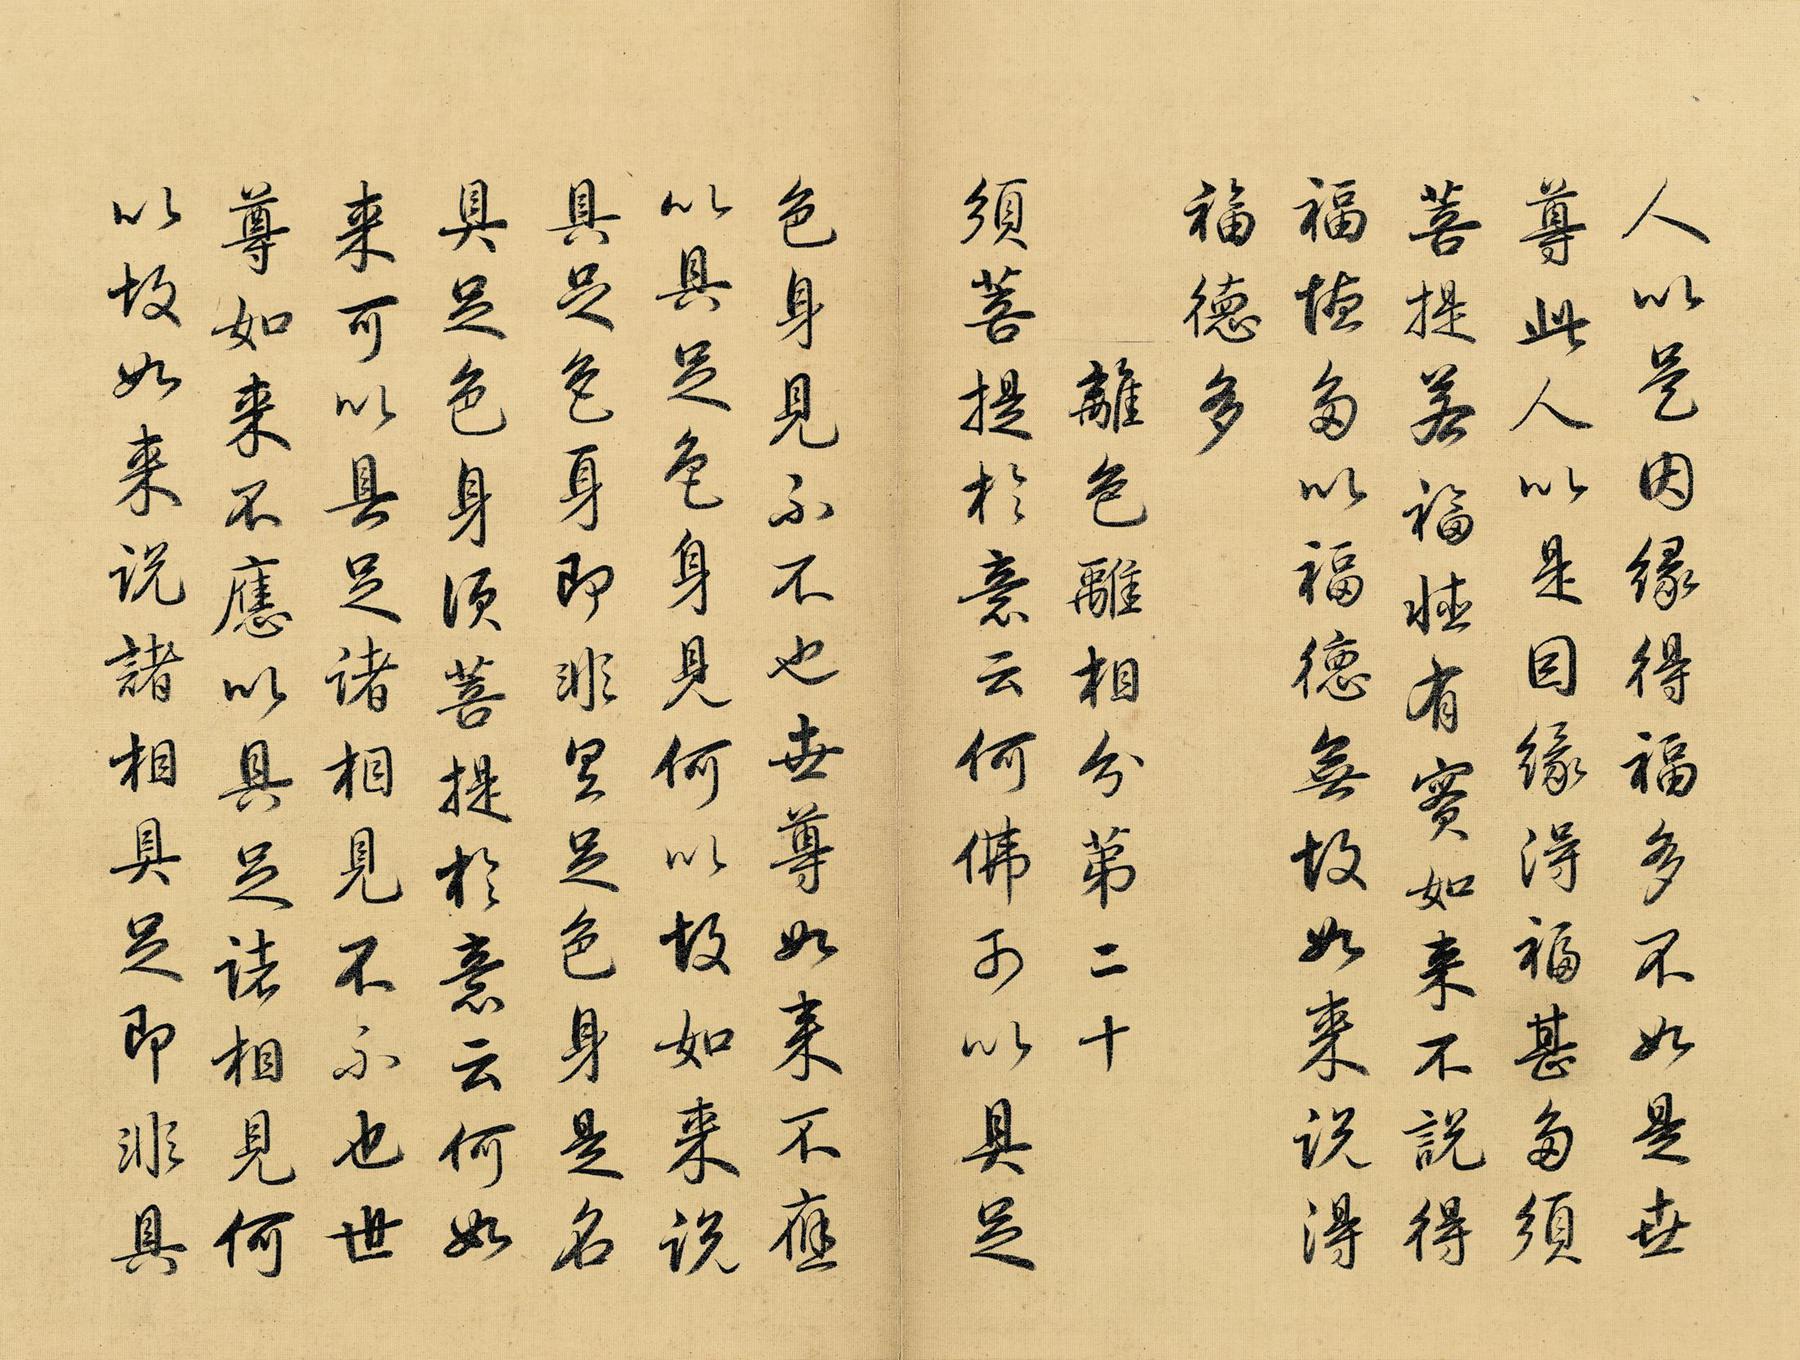 人以是因緣得福多不如是世
尊此人以是因緣得福甚多須
菩提若福德有實如來不說得
福德多以福德無故如來说得
福德多
離色離相分第二十
須菩提於意云何佛可以具足
色身見不不也世尊如来不應
以具足色身見何以故如来说
具足色身即非具足色身是名
具足色身須菩提於意云何如
来可以具足诸相見不不也世
尊如来不應以具足诸相見何
以故如来说諸相具足即非具